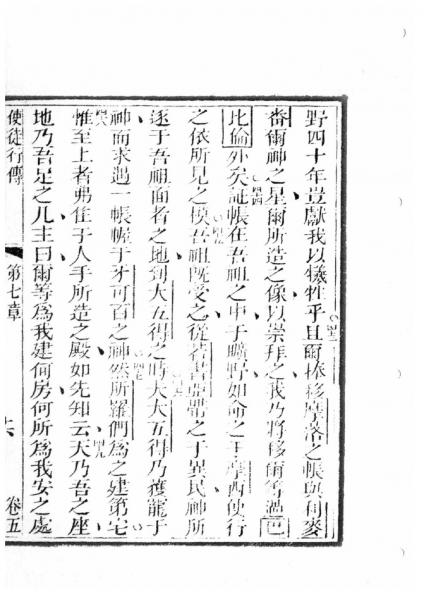 野四十年豈獻我以犧牲乎且爾捧移摩洛之帳與利麥
番爾神之星爾所造之像以崇拜之我乃將移爾等過巴
比倫外矣証帳在吾祖之中于曠野如命之主摩西使行
之依所見之模吾祖既受之從若書亞帶之于異民神所
逐于吾祖面者之地到大五得之時大大五得乃獲寵于
神而求遇一帳幄于牙可百之神然所羅們為之建第宅
惟至上者弗住于人手所造之殿如先知云天乃吾之座
地乃吾足之几主曰爾等為我建何房何所為我安之處
使徒行傳 第七章 卷五